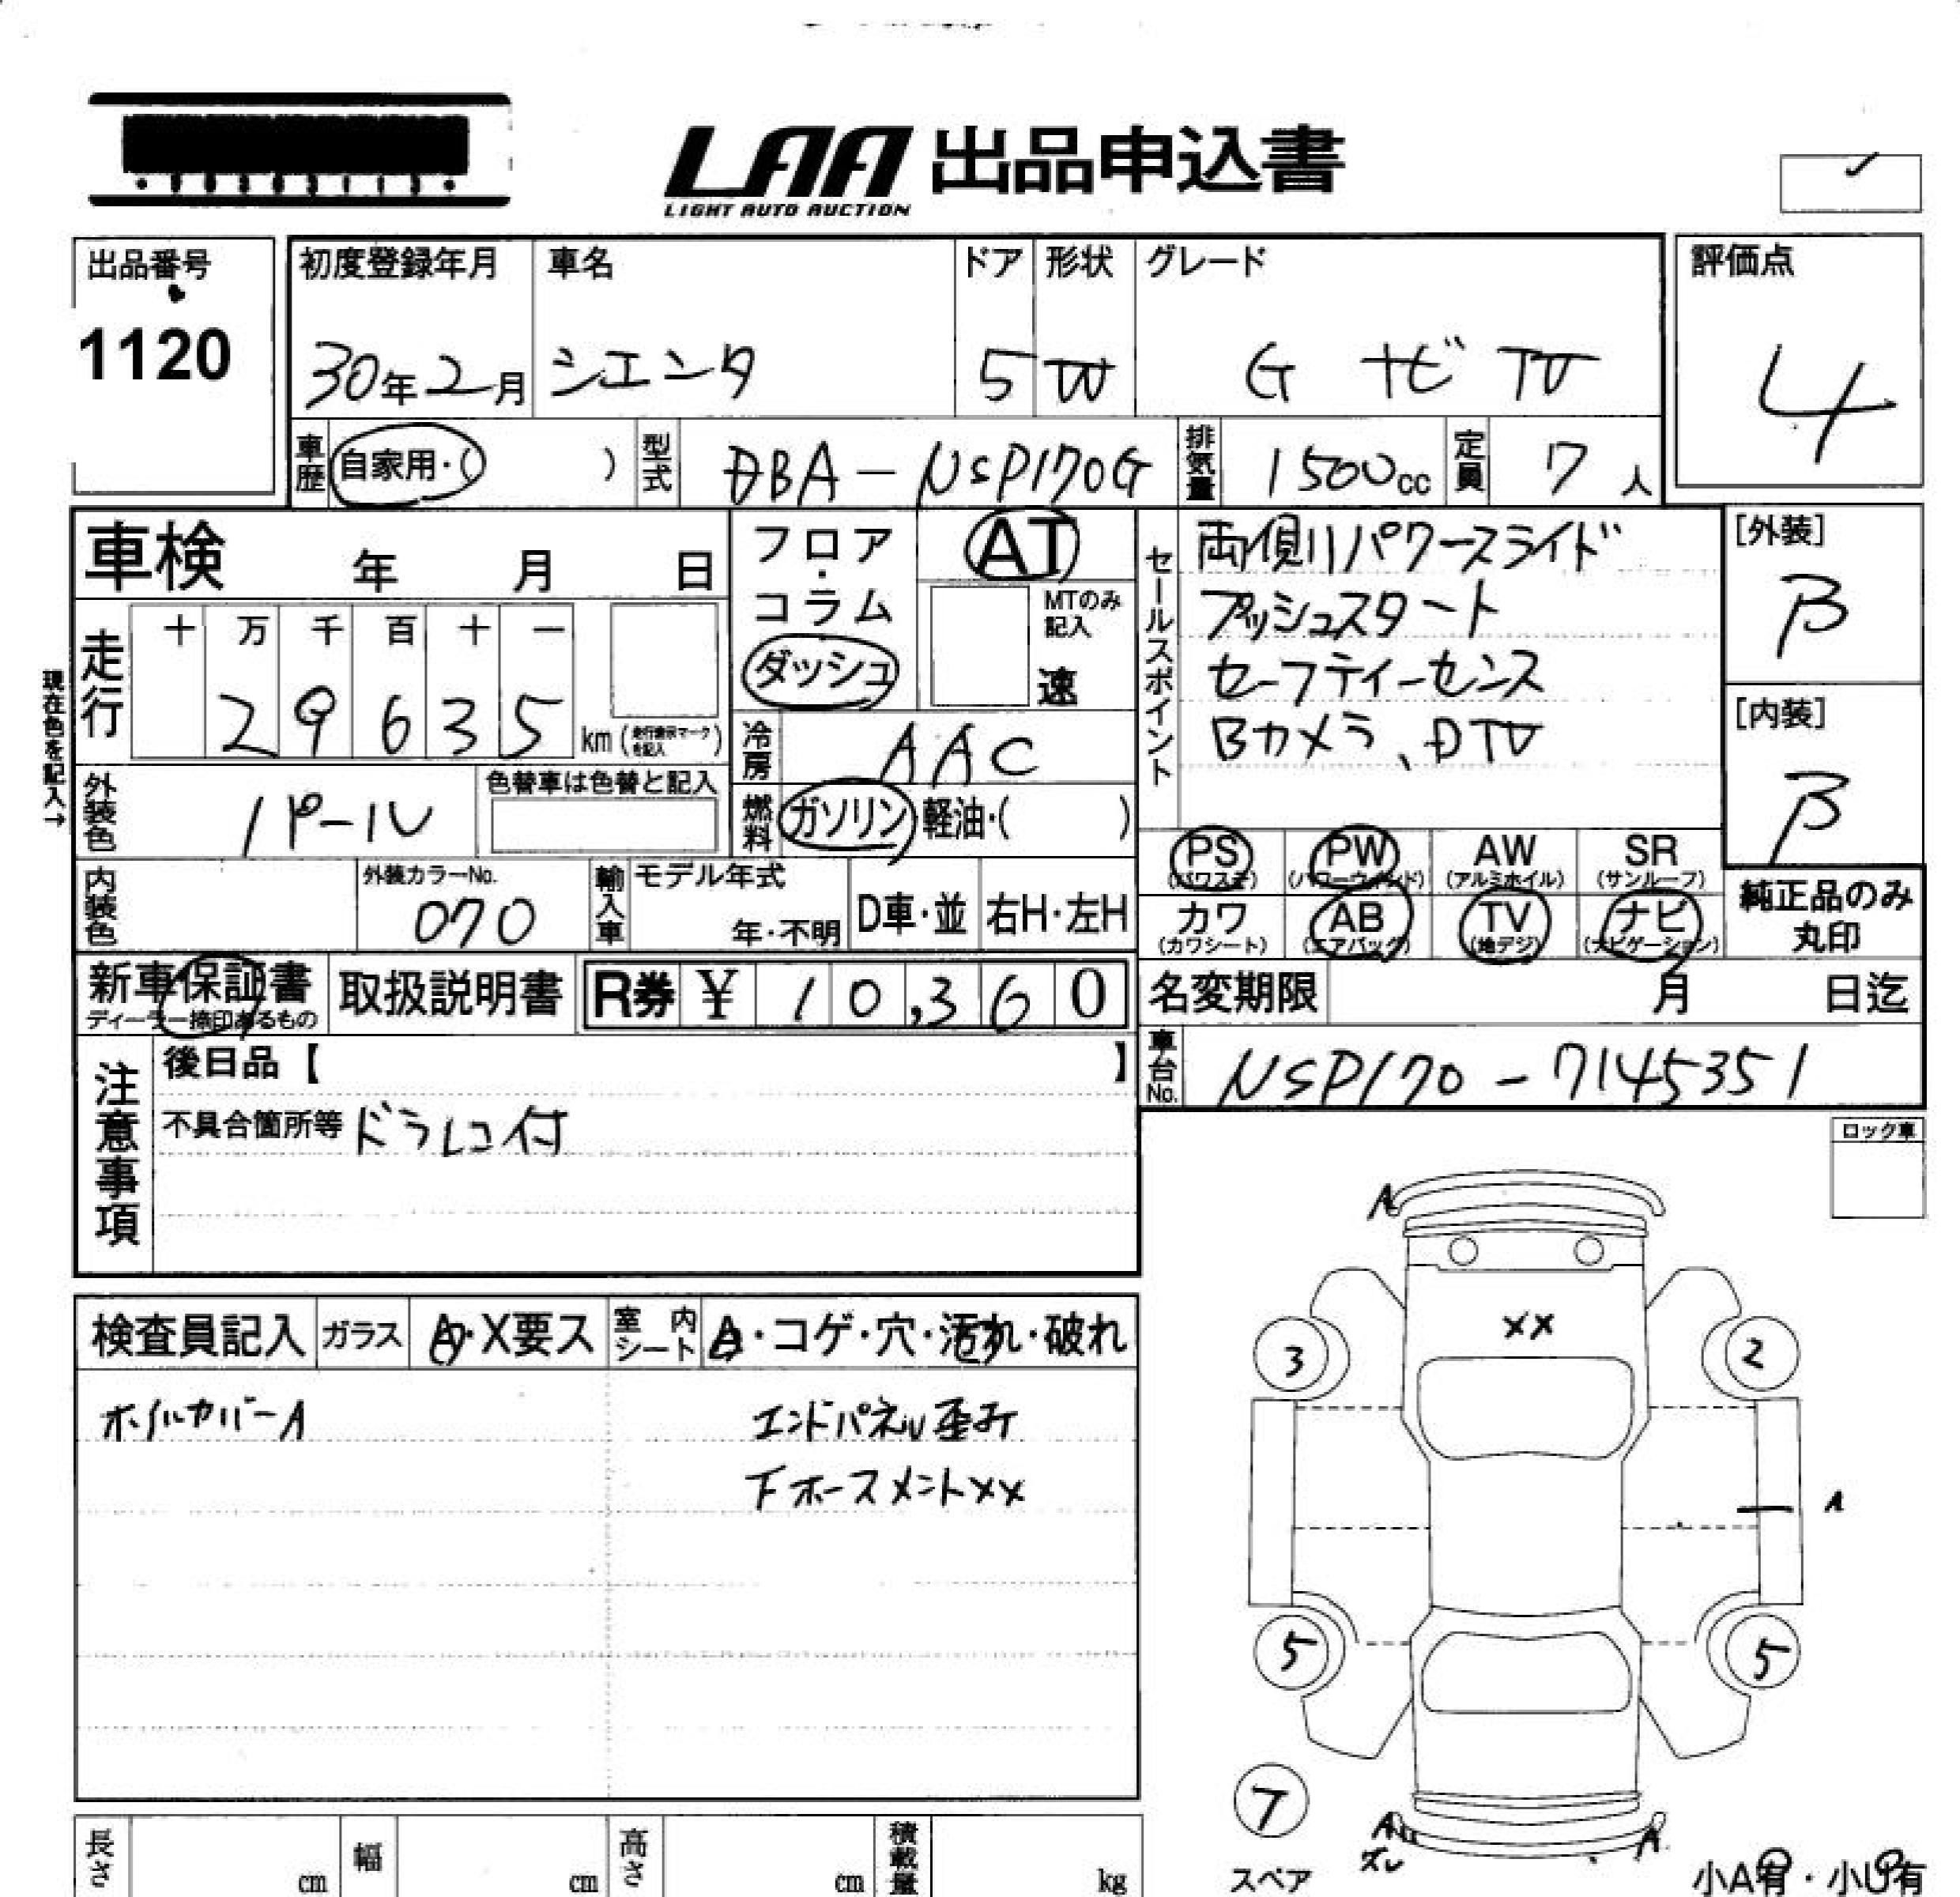 LAA 出品申込書
LIGHT AUTO AUCTION
出品番号
1120
初度登録年月
30年2月
車名
シエンタ
ドア
5
形状
W
グレード
G ナビ TV
評価点
4
車歴
自家用・( )
型式
DBA-NSP170G
排気量
1500cc
定員
7人
車検 年 月 日
フロア・コラム
ダッシュ
AT
MTのみ記入
速
セールスポイント
両側パワースライド
プッシュスタート
セーフティーセンス
Bカメラ、DTV
[外装]
B
[内装]
B
現在色を記入→
走行
十 万 千 百 十 一
2 9 6 3 5 km (走行表示マークを記入)
冷房
AAC
外装色
パール
色替車は色替と記入
燃料
ガソリン・軽油・( )
PS AW PW SR
(パワステ) (パワーウィンド) (アルミホイル) (サンルーフ)
カワ AB TV ナビ
(カワシート) (エアバック) (地デジ) (ナビゲーション)
純正品のみ丸印
内装色
外装カラーNo.
070
輸入車
モデル年式
年・不明
D車・並
右H・左H
新車保証書
ディーラー捺印あるもの
取扱説明書
R券 ¥ 10,360
名変期限 月 日迄
車台No.
NSP170-7145351
注意事項
後日品【 】
不具合箇所等 ドラレコ付
ロック車
検査員記入
ガラス
A・X要ス
室内シート
A・コゲ・穴・汚れ・破れ
ホイルカバーA
エンドパネル歪み
下ホースメントXX
A
XX
3
2
A
5
5
7
スペア
A
ズレ
A
小A有・小U有
長さ cm
幅 cm
高さ cm
積載量 kg